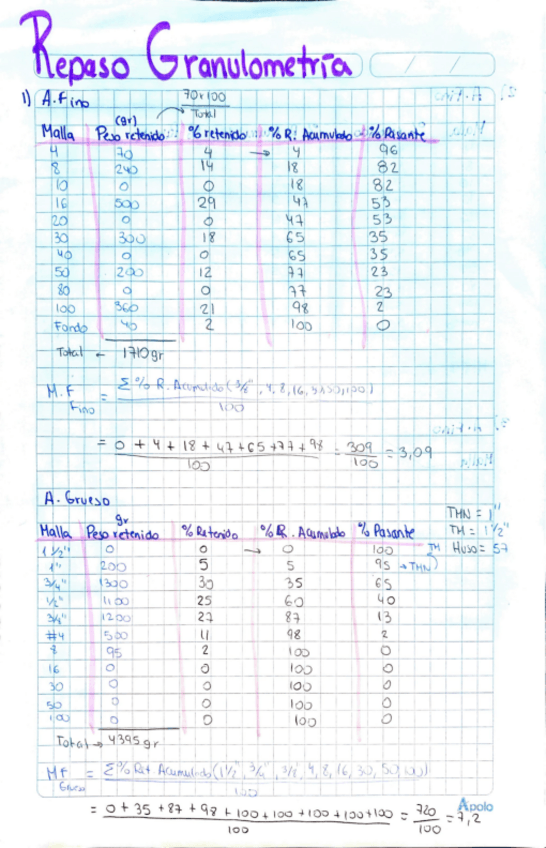 Repaso Granulometría
/ /
1) A. Fino
70x100
Total
(gr)
Malla Peso retenido % retenido % R. Acumulado % Pasante
4 70 4 → 4 96
8 240 14 18 82
10 0 0 18 82
16 500 29 47 53
20 0 0 47 53
30 300 18 65 35
40 0 0 65 35
50 200 12 77 23
80 0 0 77 23
100 360 21 98 2
Fondo 40 2 100 0
Total ← 1710gr
M.F Fino = Σ % R. Acumulado (3/8", 4, 8, 16, 30, 50, 100)
100
= 0 + 4 + 18 + 47 + 65 + 77 + 98 = 309 = 3,09
100 100
A. Grueso
THN = 1"
TH = 1 1/2"
Huso = 57
gr
Malla Peso retenido % Retenido % R. Acumulado % Pasante
1 1/2" 0 0 → 0 100 TH
1" 200 5 5 95 → THN
3/4" 1300 30 35 65
1/2" 1100 25 60 40
3/8" 1200 27 87 13
#4 500 11 98 2
8 95 2 100 0
16 0 0 100 0
30 0 0 100 0
50 0 0 100 0
100 0 0 100 0
Total → 4395gr
Mf Grueso = Σ % Ret Acumulado (1 1/2", 3/4", 3/8", 4, 8, 16, 30, 50, 100)
100
= 0 + 35 + 87 + 98 + 100 + 100 + 100 + 100 + 100 = 720 = 7,2
100 100
Apolo